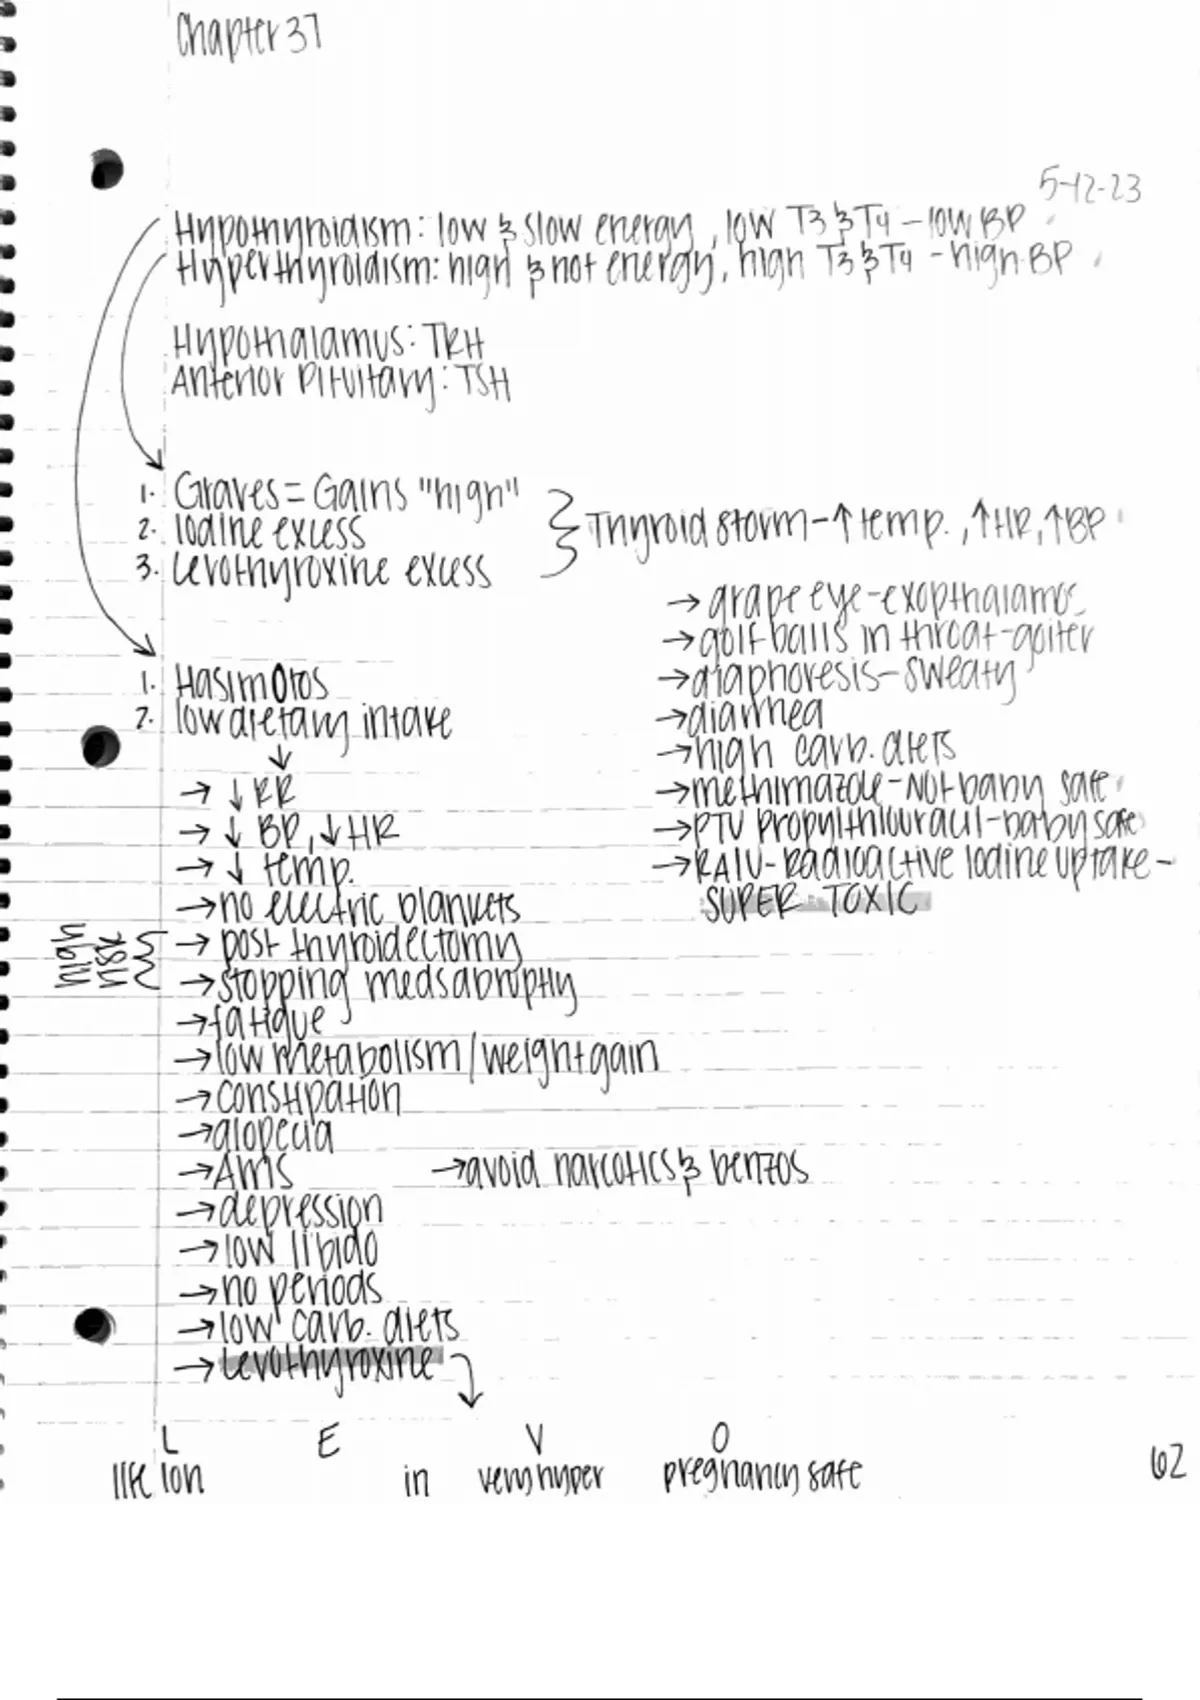 Chapter 37
5-12-23
Hypothyroidism: low & slow energy, low T3 & T4 - low BP
Hyperthyroidism: high & hot energy, high T3 & T4 - high BP
Hypothalamus: TRH
Anterior Pituitary: TSH
1. Graves = Gains "high"
2. Iodine excess
3. Levothyroxine excess
} Thyroid storm - ↑ temp., ↑HR, ↑BP
→ grape eye - exopthalamos
→ golf balls in throat - goiter
→ diaphoresis - sweaty
→ diarrhea
→ high carb. diets
→ methimazole - NOT baby safe
→ PTU Propylthiouracil - baby safe
→ RAIU - Radioactive Iodine Uptake -
SUPER TOXIC
1. Hasimotos
2. low dietary intake
↓
→ ↓ RR
→ ↓ BP, ↓ HR
→ ↓ temp.
→ no electric blankets
high risk { → post thyroidectomy
→ stopping meds abruptly
→ fatigue
→ low metabolism / weight gain
→ constipation
→ alopecia
→ AMS → avoid narcotics & benzos
→ depression
→ low libido
→ no periods
→ low carb. diets
→ Levothyroxine
L E V O
life lon in very hyper pregnancy safe
62